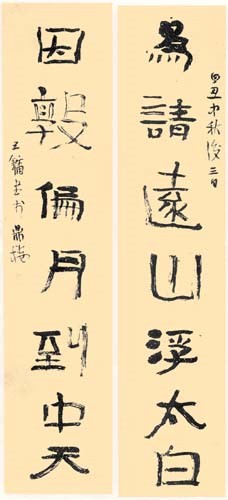 為請遠山浮太白
丑中秋後三日
因偏月到中天
王鏞書